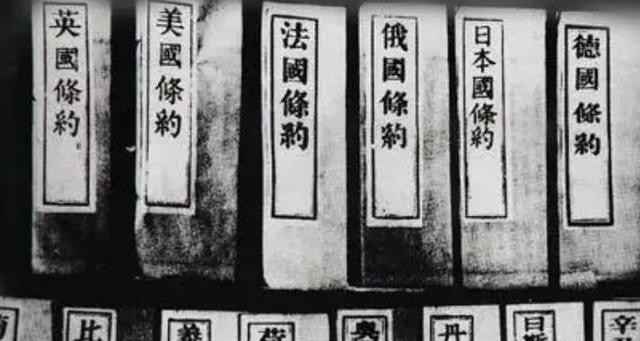 英國條約
美國條約
法國條約
俄國條約
日本國條約
德國條約
比
義
奧
丹